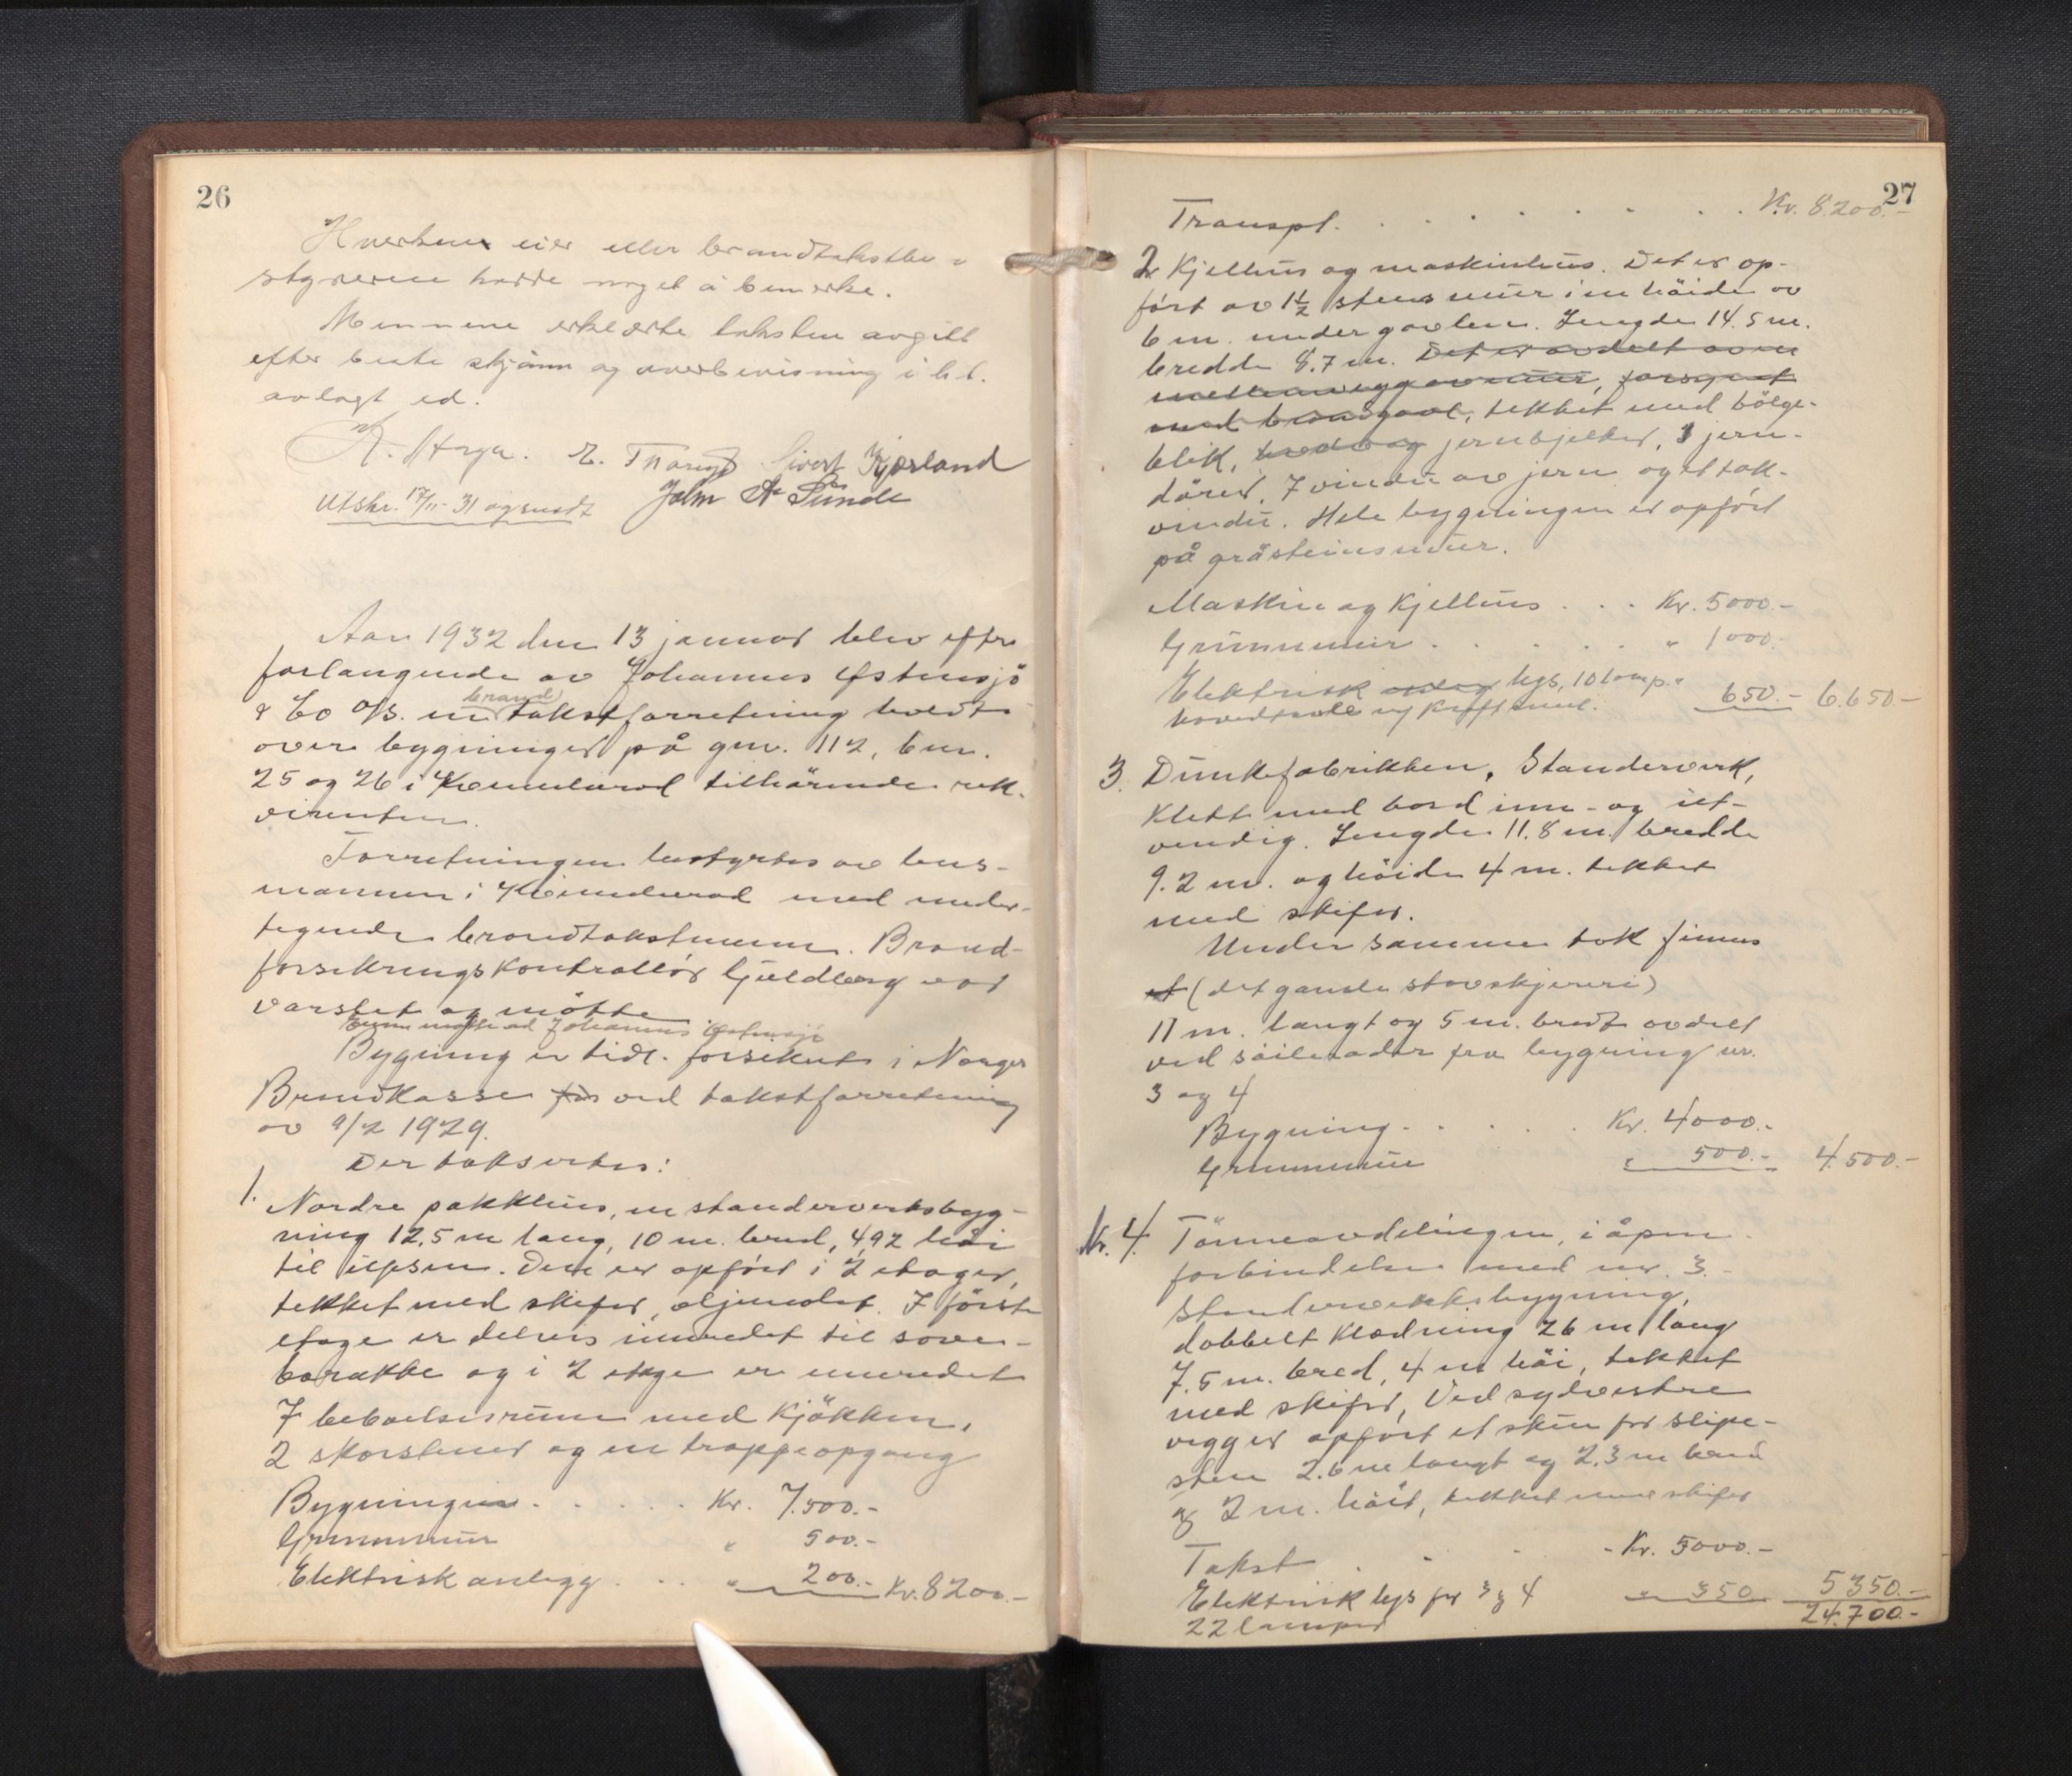 26
Hverken eier eller brandtakstbe-
styreren hadde noget å bemerke.
Mennene erklærte taksten avgitt
efter beste skjønn og overbevisning i h.t.
avlagt ed.
A. Haga. E. Sivert Kjærland
Utskr. 17/11-31 og sendt John A Sunde
Aar 1932 den 13 januar blev efter
forlangende av Johannes Østensjö
& Co A/S. en brand takstforretning holdt
over bygninger på gnr. 112, bnr.
25 og 26 i Kvinnherad tilhörende rek-
virenten.
Forretningen bestyrtes av lens-
mannen i Kvinnherad med under-
tegnede brandtakstmenn. Brand-
forsikringskontrollör Guldberg var
varslet og mötte
Eieren mötte ved Johannes Östensjö
Bygning er tidl. forsikret i Norges
Brandkasse ved takstforretning
av 9/2 1929.
Der taksertes:
1. Nordre pakkhus, en standerverksbyg-
ning 12.5 m lang, 10 m. bred, 4,92 höi
til upsen. Den er opfört i 2 etager,
tekket med skifer, oljemalet. I förste
etage er delvis innredet til sove-
barakke og i 2 etage er innredet
7 beboelsesrum med kjökken,
2 skorstener og en trappeopgang
Bygningen . . . . . Kr. 7.500.-
Grunnmur " 500.-
Elektrisk anlegg . . . " 200.- Kr. 8200.-
27
Transpt. . . . . . . . Kr. 8200.-
2. Kjellhus og maskinhus. Det er op-
fört av 1½ stens mur i en höide av
6 m. under gavlen. Lengde 14.5 m.
bredde 8.7 m. Det er avdelt av en
mellemvegg av mur, forsynt
med brandgavl, tekket med bölge-
blik, jernbjelker, 3 jern-
dörer, 7 vinduer av jern og et tak-
vindu. Hele bygningen er opfört
på gråsteinsmur.
Maskin og Kjellhus . . . Kr. 5000.-
Grunnmur . . . . . " 1000.-
Elektrisk anlegg lys, 10 lamp.
hovedtavle og kraftinnl. 650.- 6.650.-
3. Dunkefabrikken, Standerverk,
Kledt med bord inn- og ut-
vendig. Lengde 11.8 m. bredde
9.2 m. og höide 4 m. tekket
med skifer.
Under samme tak finnes
et (det gamle stavskjereri)
11 m. langt og 5 m. bredt avdelt
ved söilerader fra bygning nr.
3 og 4
Bygning . . . . . Kr. 4000.-
Grunnmur " 500.- 4.500.-
Nr. 4. Tönneavdelingen, i åpen
forbindelse med nr. 3.
Standerverksbygning,
dobbelt Klædning 26 m lang
7.5 m. bred, 4 m höi, tekket
med skifer, Ved sydvestre
vegg er opfört et skur for slipe-
sten 2.6 m langt og 2.3 m bred
og 2 m. höit, tekket med skifer
Takst . . . - Kr. 5000.-
Elektrisk lys for 3 og 4 " 350 5350.-
22 lamper 24.700.-